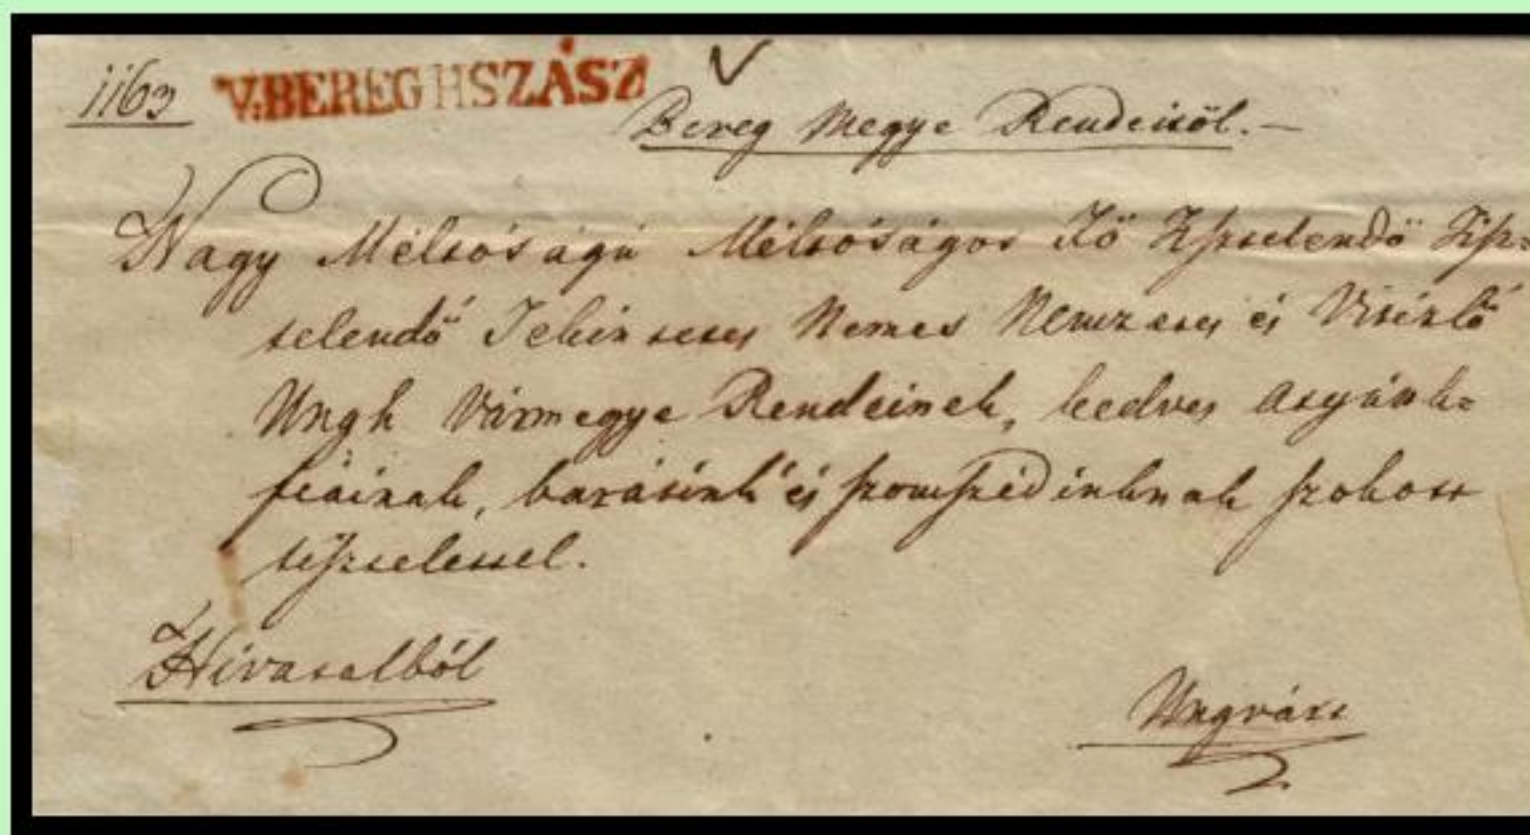 1163 V.BEREGHSZÁSZ
Bereg Megye Rendeitöl.—
Nagy Méltóságú Méltóságos Fő Tisztelendő Tisz=
telendő Tekintetes Nemes Nemzetes és Vitézlő
Ungh Vármegye Rendeinek, kedves Atyánk=
fiainak, barátink és szomszédinknak szokott
tisztelettel.
Hivatalból
Ungvárt